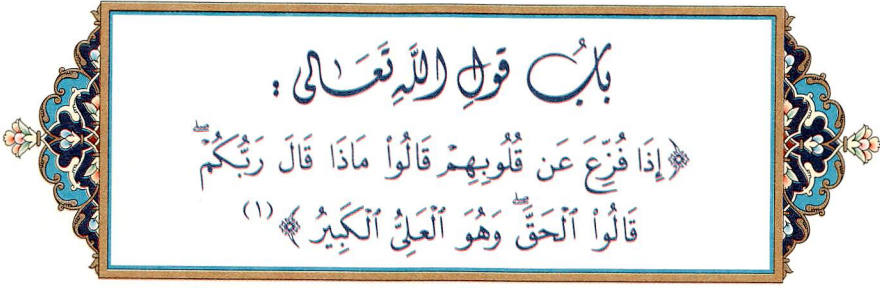 بَابُ قَوْلِ اللَّهِ تَعَالَى :
﴿إِذَا فُزِّعَ عَن قُلُوبِهِمْ قَالُوا۟ مَاذَا قَالَ رَبُّكُمْ ۖ
قَالُوا۟ ٱلْحَقَّ ۖ وَهُوَ ٱلْعَلِىُّ ٱلْكَبِيرُ ﴾ (١)